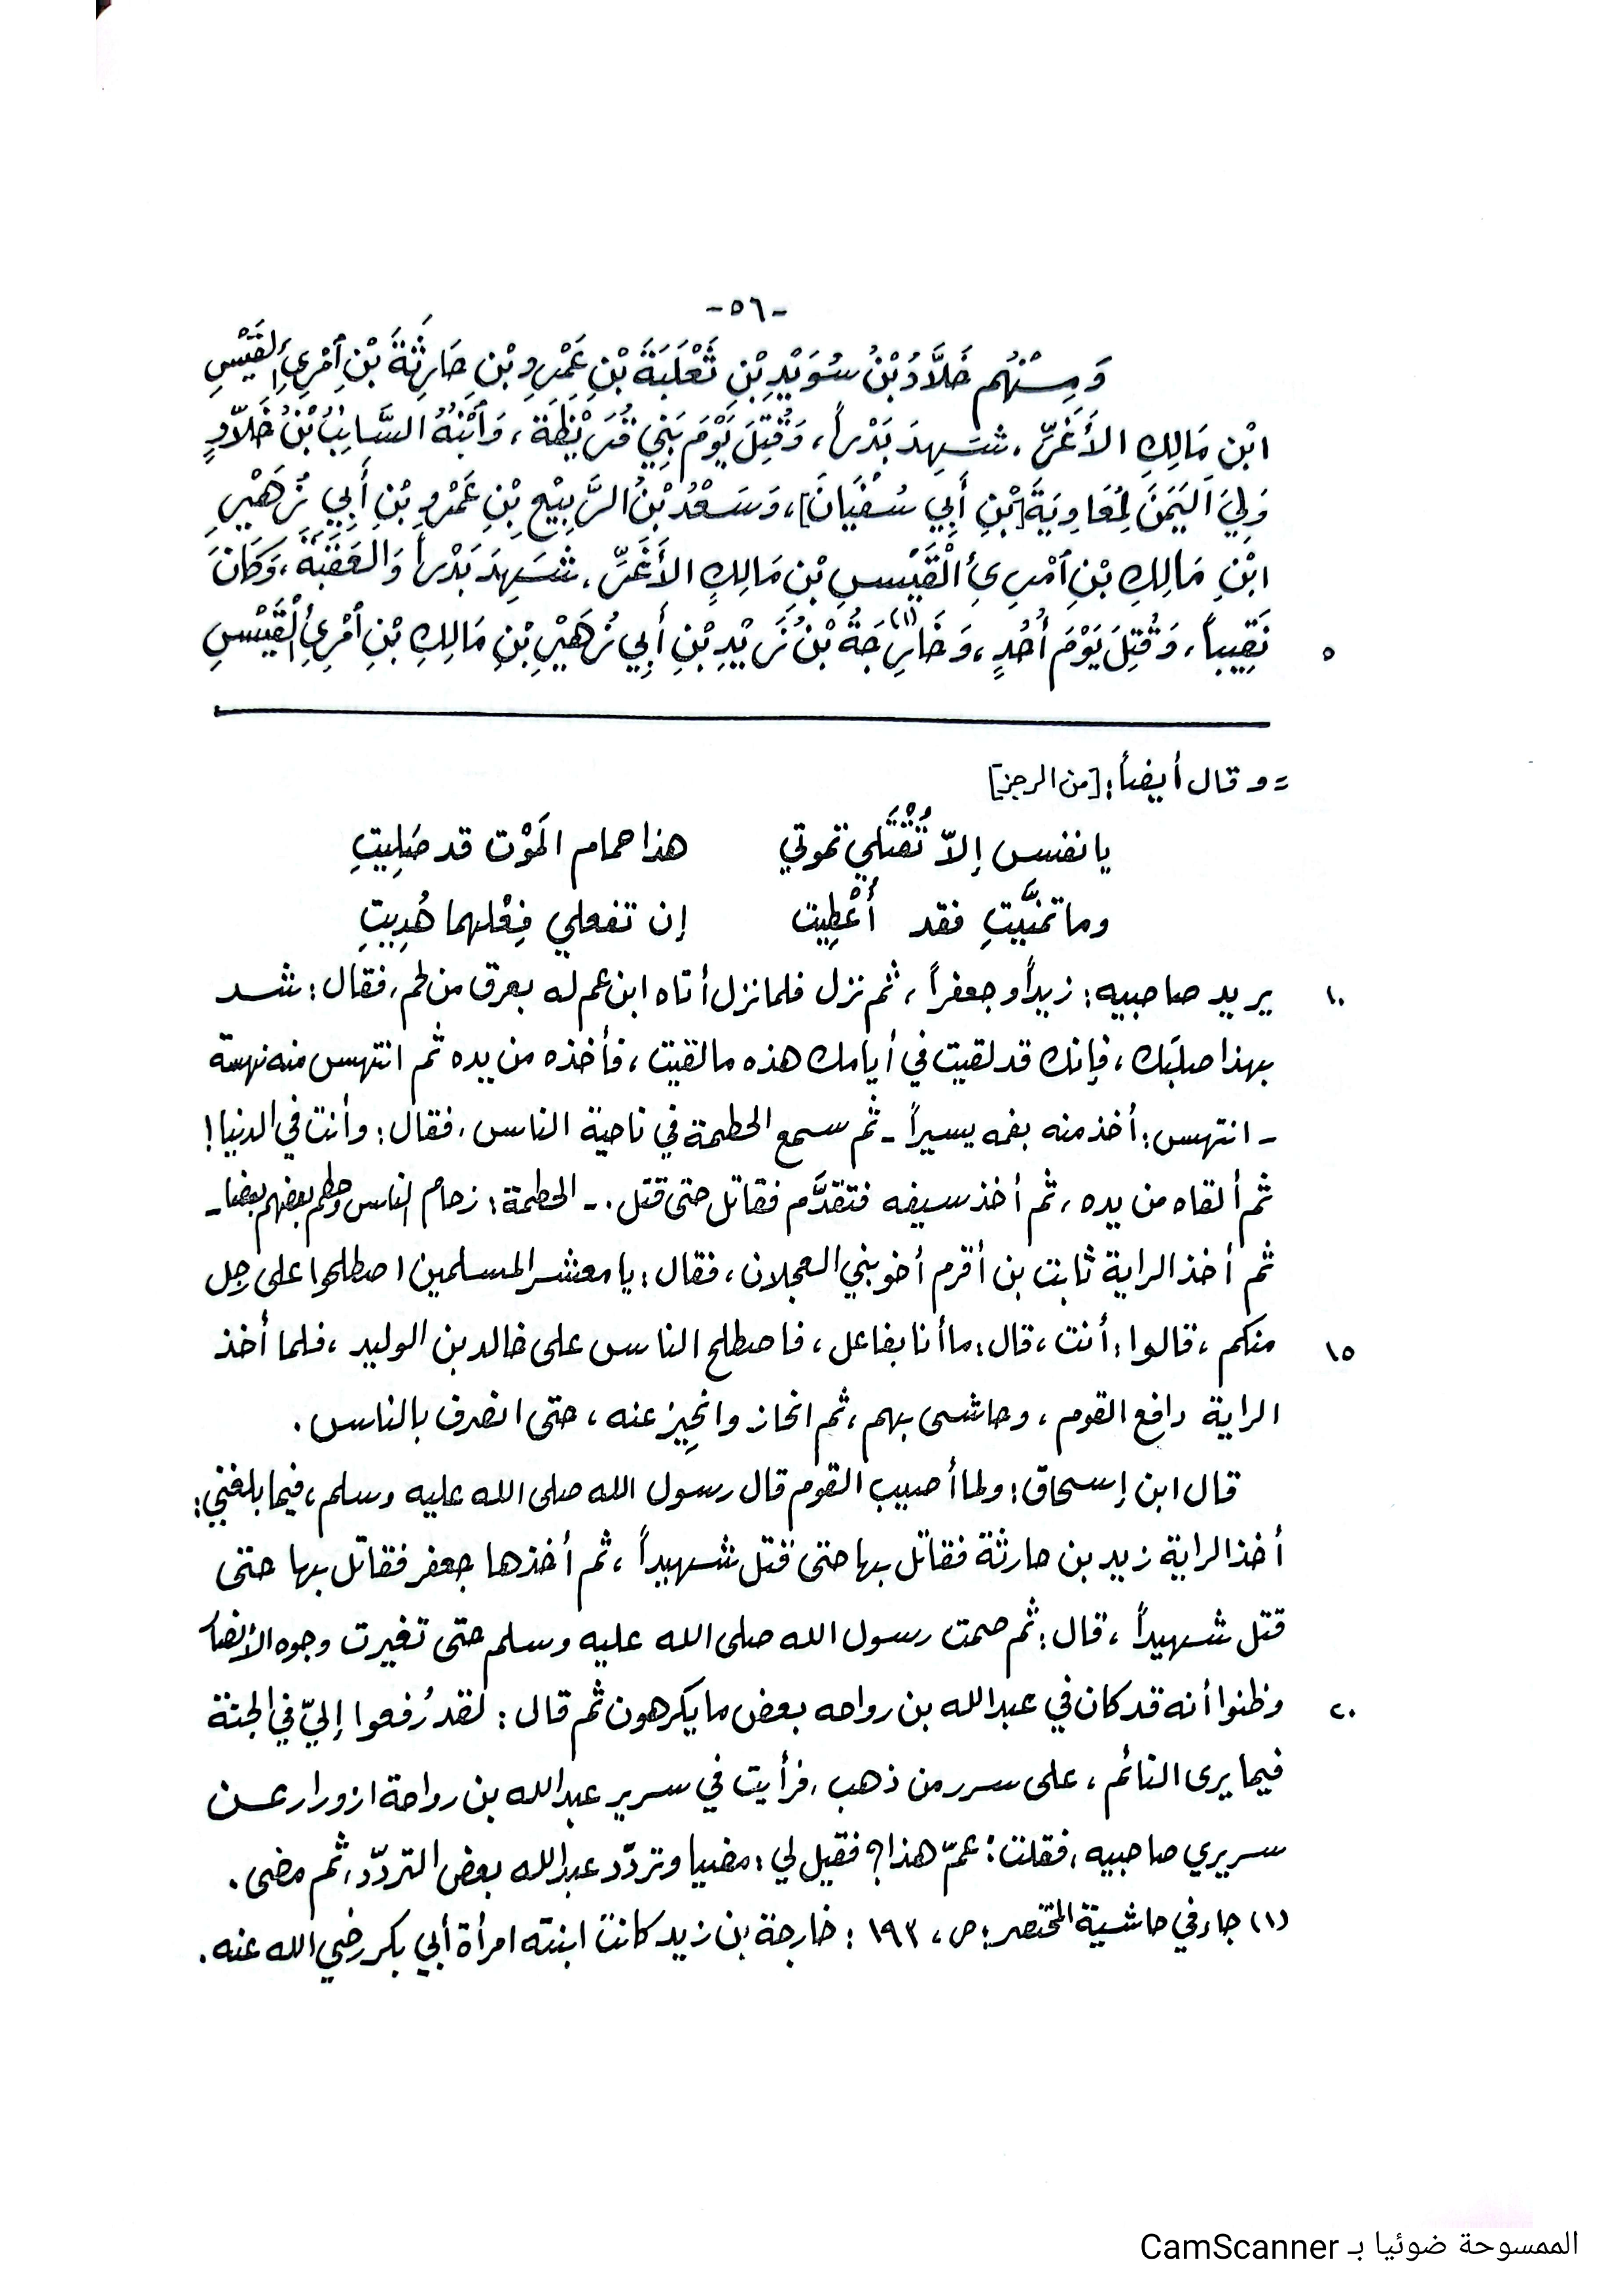 -٥٦-
وَمِنْهُم خَلَّادُ بْنُ سُوَيْدِ بْنِ ثَعْلَبَةَ بْنِ عَمْرِو بْنِ حَارِثَةَ بْنِ اَمْرِئِ القَيْسِ
ابْنِ مَالِكِ الأَغَرِّ، شَهِدَ بَدْراً، وَقُتِلَ يَوْمَ بَنِي قُرَيْظَة، وَاَبْنُهُ السَّايِبُ بْنُ خَلّادٍ
وَلِيَ اَليَمَنَ لِمُعَاوِيَةَ [بْنِ أَبِي سُفْيَانَ]، وَسَعْدُ بْنُ الرَّبِيْعِ بْنِ عَمْرِو بْنِ أَبِي زُهَيْرِ
ابْنِ مَالِكِ بْنِ اَمْرِئِ الْقَيْسِ بْنِ مَالِكِ الأَغَرِّ، شَهِدَ بَدْراً وَالعَقَبَةَ، وَكَانَ
نَقِيباً، وَقُتِلَ يَوْمَ أُحُدٍ، وَخَارِجَةُ (١) بْنُ زَيْدِ بْنِ أَبِي زُهَيْرِ بْنِ مَالِكِ بْنِ اَمْرِئِ الْقَيْسِ
٥
= وقال أيضاً: [من الرجز]
يا نفس إلاّ تُقْتَلي تموتي هذا حمام المَوْت قد صَلِيتِ
وما تمنَّيتِ فقد أُعْطِيت إن تفعلي فِعْلهما هُدِيتِ
يريد صاحبيه: زيداً وجعفراً، ثم نزل فلما نزل أتاه ابن عم له بعرق من لحم، فقال: شد
١٠
بهذا صلبَك، فإنك قد لقيت في أيامك هذه ما لقيت، فأخذه من يده ثم انتهس منه نهسة
- انتهس: أخذ منه بفمه يسيراً - ثم سمع الحطمة في ناحية الناس، فقال: وأنت في الدنيا!
ثم ألقاه من يده، ثم أخذ سيفه فتقدَّم فقاتل حتى قتل. - الحطمة: زحام الناس وحطم بعضهم بعضا -
ثم أخذ الراية ثابت بن أقرم أخو بني العجلان، فقال: يا معشر المسلمين اصطلحوا على رجل
منكم، قالوا: أنت، قال: ما أنا بفاعل، فاصطلح الناس على خالد بن الوليد، فلما أخذ
١٥
الراية دافع القوم، وحاشى بهم، ثم انحاز وانحِيز عنه، حتى انصرف بالناس.
قال ابن إسحاق: ولما أصيب القوم قال رسول الله صلى الله عليه وسلم، فيما بلغني:
أخذ الراية زيد بن حارثة فقاتل بها حتى قتل شهيداً، ثم أخذها جعفر فقاتل بها حتى
قتل شهيداً، قال: ثم صمت رسول الله صلى الله عليه وسلم حتى تغيرت وجوه الأنصار
وظنوا أنه قد كان في عبدالله بن رواحه بعض ما يكرهون ثم قال: لقد رُفعوا إليّ في الجنة
٢٠
فيما يرى النائم، على سرر من ذهب، فرأيت في سرير عبدالله بن رواحة ازورار عن
سريري صاحبيه، فقلت: عمّ هذا؟ فقيل لي: مضيا وتردّد عبدالله بعض التردّد، ثم مضى.
(١) جاء في حاشية المختصر: ص، ١٩٣: خارجة بن زيد كانت ابنته امرأة أبي بكر رضي الله عنه.
الممسوحة ضوئيا بـ CamScanner